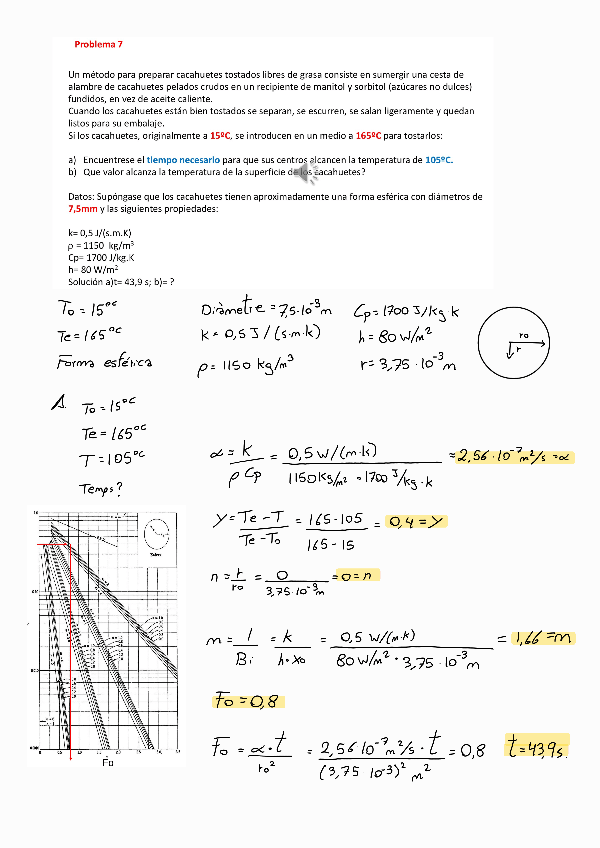 Problema 7
Un método para preparar cacahuetes tostados libres de grasa consiste en sumergir una cesta de
alambre de cacahuetes pelados crudos en un recipiente de manitol y sorbitol (azúcares no dulces)
fundidos, en vez de aceite caliente.
Cuando los cacahuetes están bien tostados se separan, se escurren, se salan ligeramente y quedan
listos para su embalaje.
Si los cacahuetes, originalmente a 15ºC, se introducen en un medio a 165ºC para tostarlos:
a) Encuentrese el tiempo necesario para que sus centros alcancen la temperatura de 105ºC.
b) Que valor alcanza la temperatura de la superficie de los cacahuetes?
Datos: Supóngase que los cacahuetes tienen aproximadamente una forma esférica con diámetros de
7,5mm y las siguientes propiedades:
k= 0,5 J/(s.m.K)
ρ = 1150 kg/m³
Cp= 1700 J/kg.K
h= 80 W/m²
Solución a)t= 43,9 s; b)= ?
To = 15ºC Diàmetre = 7,5·10⁻³ m Cp = 1700 J/kg·k
Te = 165ºC k = 0,5 J / (s·m·k) h = 80 W/m²
Forma esférica ρ = 1150 kg/m³ r = 3,75 · 10⁻³ m
ro
r
A. To = 15ºC
Te = 165ºC
T = 105ºC
Temps?
α = k / ρ Cp = 0,5 W/(m·k) / 1150 kg/m² · 1700 J/kg·k = 2,56 · 10⁻⁷ m²/s = α
Y = Te - T / Te - To = 165 - 105 / 165 - 15 = 0,4 = Y
n = r / ro = 0 / 3,75·10⁻³ m = 0 = n
m = 1 / Bi = k / h · xo = 0,5 W/(m·k) / 80 W/m² · 3,75 · 10⁻³ m = 1,66 = m
Fo = 0,8
Fo = α · t / ro² = 2,56 10⁻⁷ m²/s · t / (3,75 10⁻³)² m² = 0,8 t = 43,9 s.
Fo